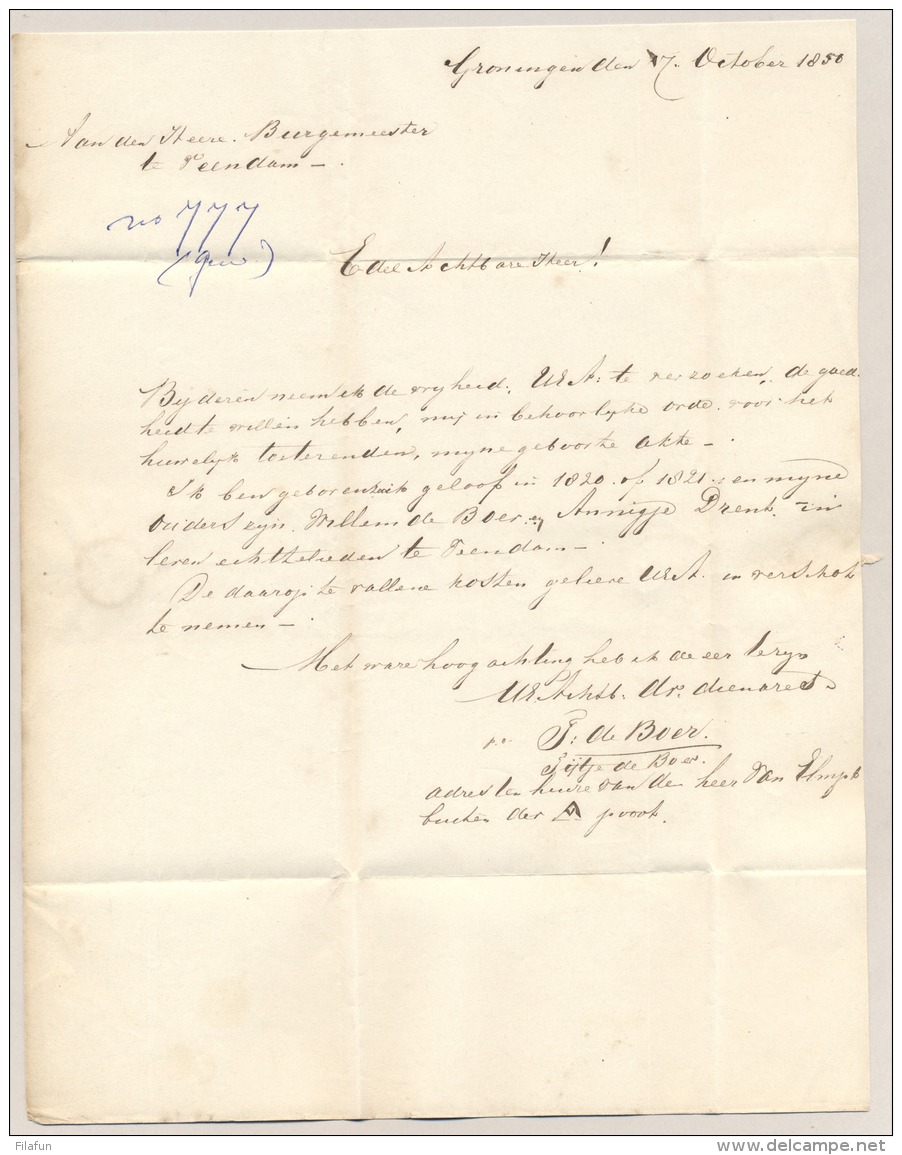 Groningen den 17. October 1850
Aan den Heere Burgemeester
te Veendam —.
no 777
Edel Achtbare Heer!
Bij deren neem ik de vryheid, UEA: te verzoeken, de goed
heid te willen hebben, mij in behoorlyke orde voor het
huwelyk toeterenden, myne geboorte akte —.
Ik ben geboren zoo ik geloof in 1820 of 1821 : en myne
ouders zyn Willem de Boer en Annigje Drent — in
leven echtelieden te Veendam —.
De daarop te vallene kosten gelieve UEA. in verschot
te nemen —.
Met ware hoogachting heb ik de eer te zyn
UEAchtb. dv. dienares
F: de Boer.
de Boer.
adres ten huize van den heer Van
buiten der A poort.
Filafun
delcampe.net